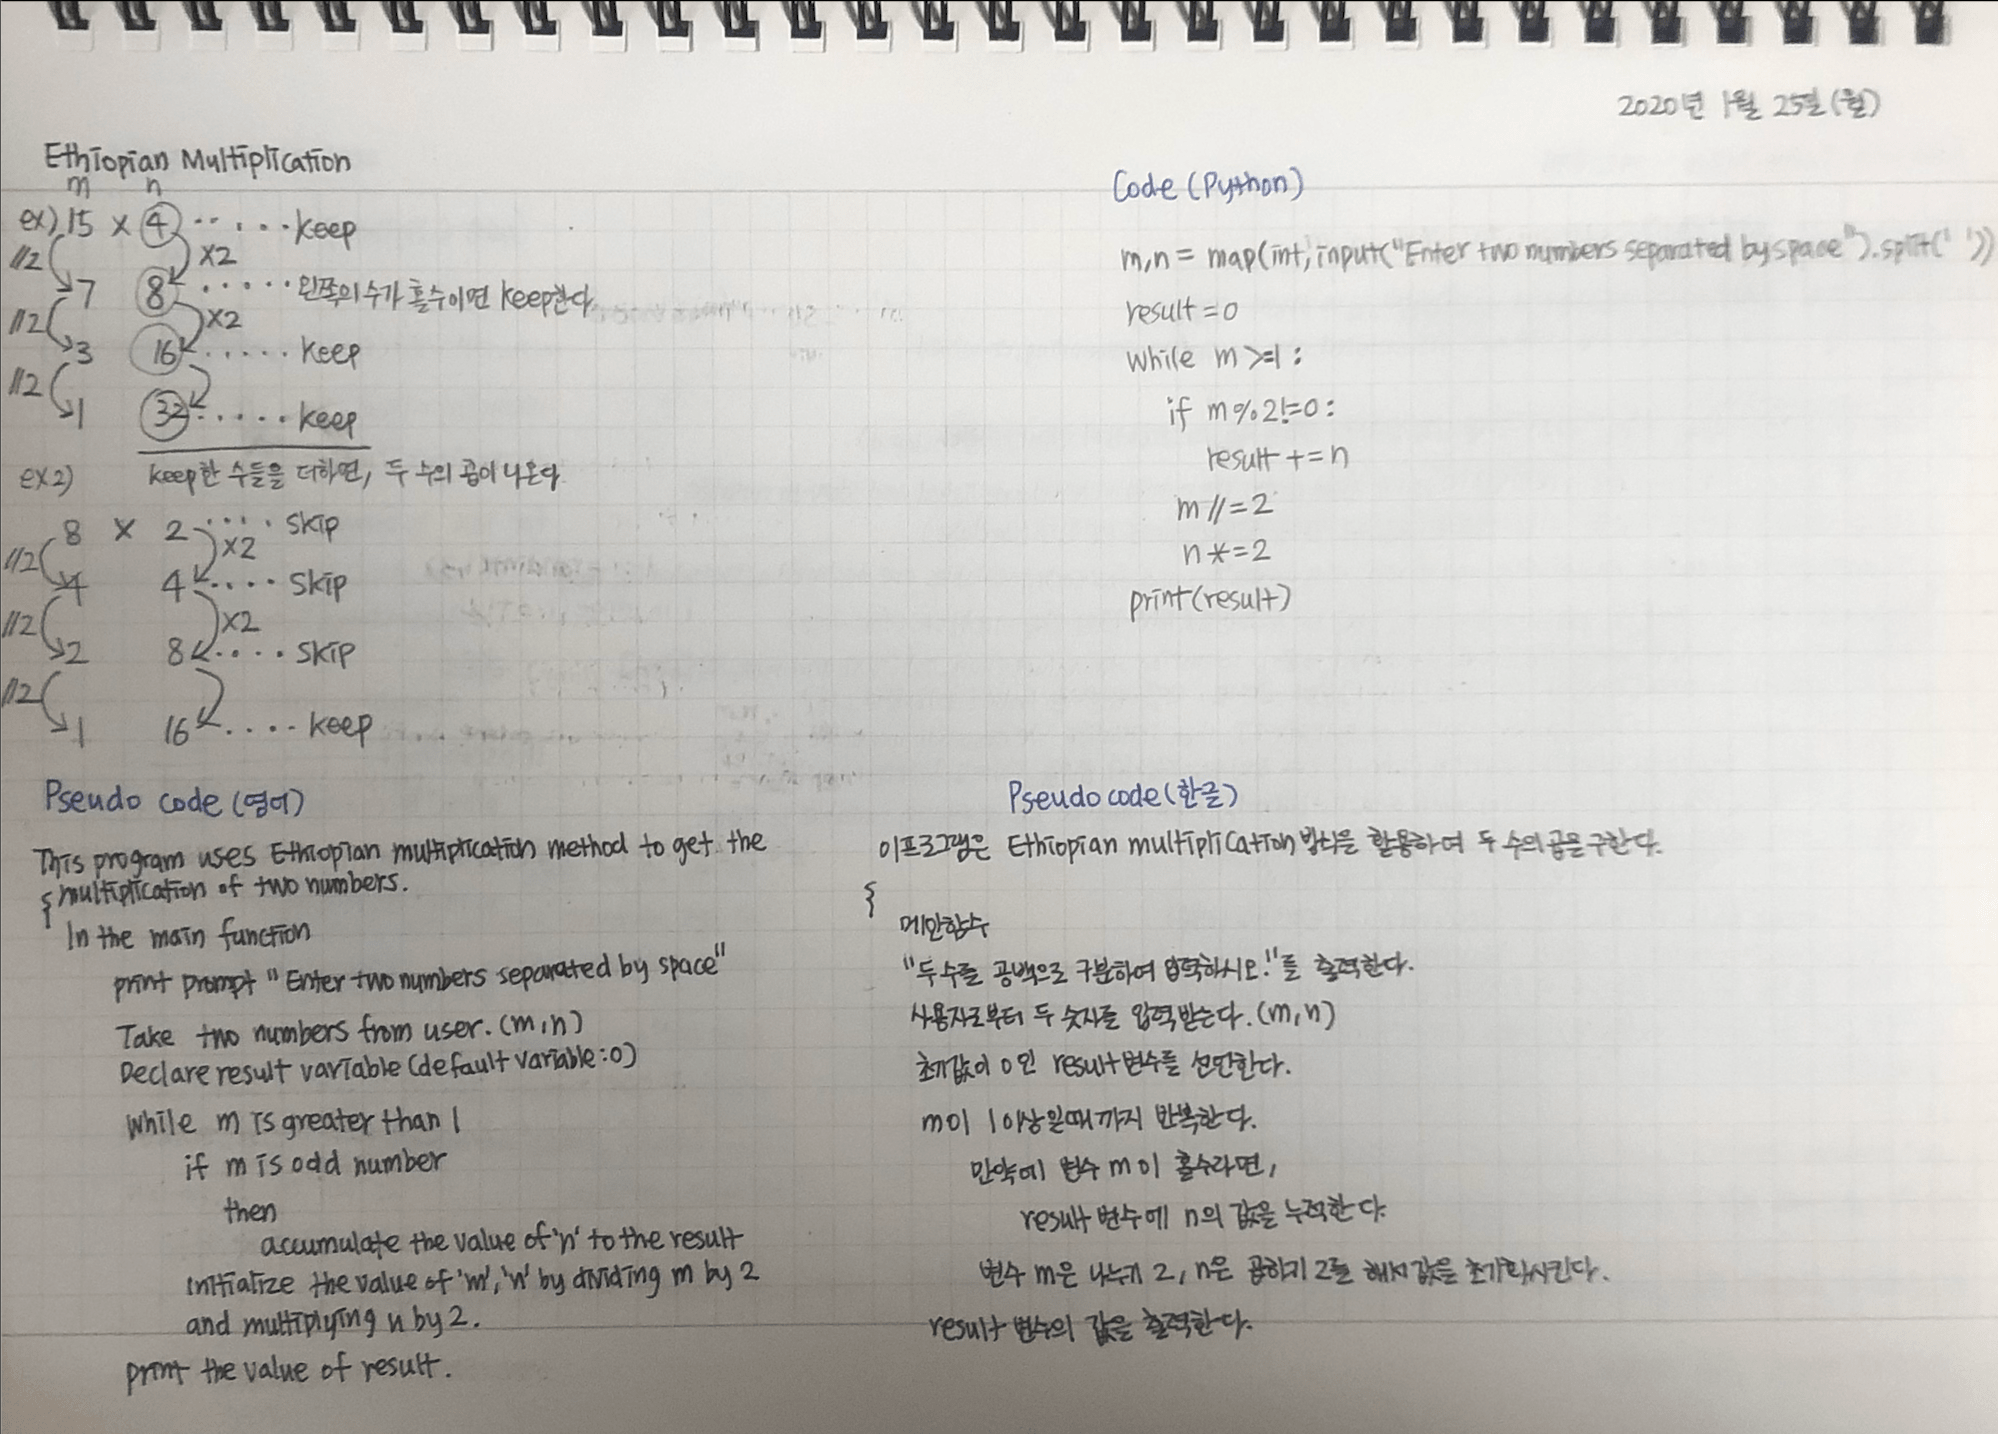 2020년 1월 25일(월)
Ethiopian Multiplication
m n
ex) 15 x 4 ······ keep
//2 x2
7 8 ······ 왼쪽의 수가 홀수이면 keep한다.
//2 x2
3 16 ······ keep
//2
1 32 ······ keep
keep한 수들을 더하면, 두 수의 곱이 나온다.
ex2)
8 x 2 ···· skip
//2 x2
4 4 ···· skip
//2 x2
2 8 ···· skip
//2
1 16 ···· keep
Code (Python)
m,n = map(int, input("Enter two numbers separated by space").split(' '))
result = 0
while m >=1 :
if m%2!=0 :
result += n
m //= 2
n *= 2
print(result)
Pseudo code (영어)
This program uses Ethiopian multiplication method to get the
multiplication of two numbers.
{
In the main function
print prompt "Enter two numbers separated by space"
Take two numbers from user. (m,n)
Declare result variable (default variable:0)
while m is greater than 1
if m is odd number
then
accumulate the value of 'n' to the result
initialize the value of 'm','n' by dividing m by 2
and multiplying n by 2.
print the value of result.
Pseudo code (한글)
이프로그램은 Ethiopian multiplication 방식을 활용하여 두 수의 곱을 구한다.
{
메인함수
"두 수를 공백으로 구분하여 입력하시오!"를 출력한다.
사용자로부터 두 숫자를 입력받는다. (m,n)
초기값이 0인 result 변수를 선언한다.
m이 1이상일때까지 반복한다.
만약에 변수 m이 홀수라면,
result 변수에 n의 값을 누적한다.
변수 m은 나누기 2, n은 곱하기 2를 해서 값을 초기화시킨다.
result 변수의 값을 출력한다.